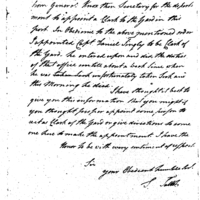 tion General. Knox then Secretary for the depart-
ment to appoint a Clerk to the Yard in this
port. In obedience to the above mentioned order
I appointed Capt Daniel Tingly to be Clerk of
the Yard. He entered upon and did the duties
of that office until about a week since when
he was taken and unfortunately taken sick and
this Morning he died.
I have thought it best to
give you this information that you might if
you thought proper appoint some person to
act as Clerk of the Yard or give directions to some
one here to make the appointment. I have the
Honor to be with every sentiment of respect
Sir
your Obedient humble Serv